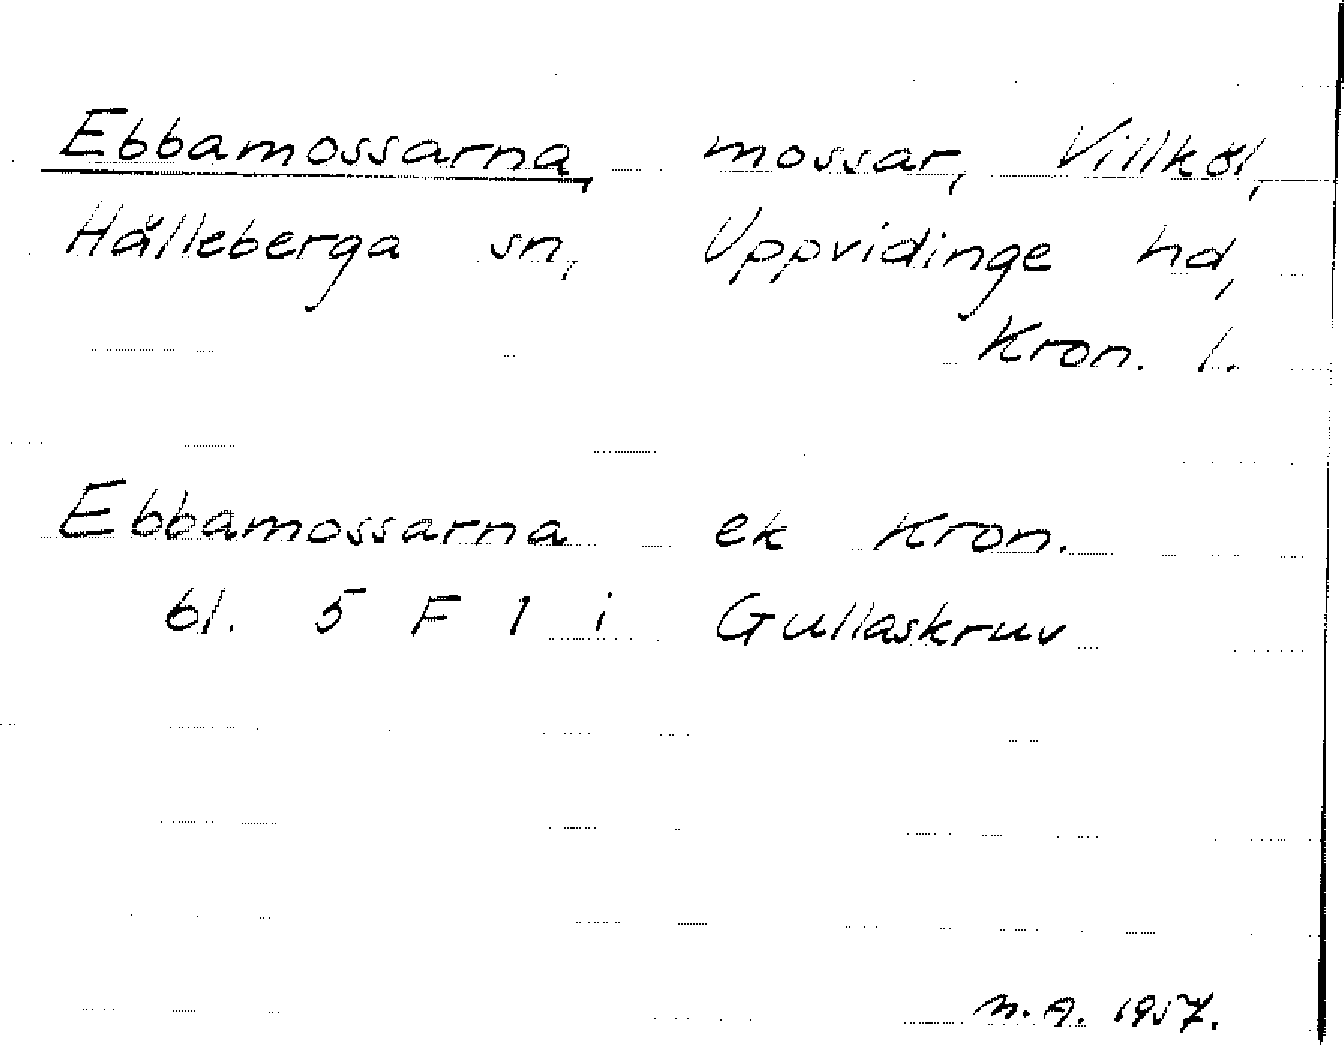 Ebbamossarna, mossar, Villköl,
Hälleberga sn, Uppvidinge hd,
Kron. l.
Ebbamossarna ek Kron.
bl. 5 F 1 i Gullaskruv
N.A. 1957.